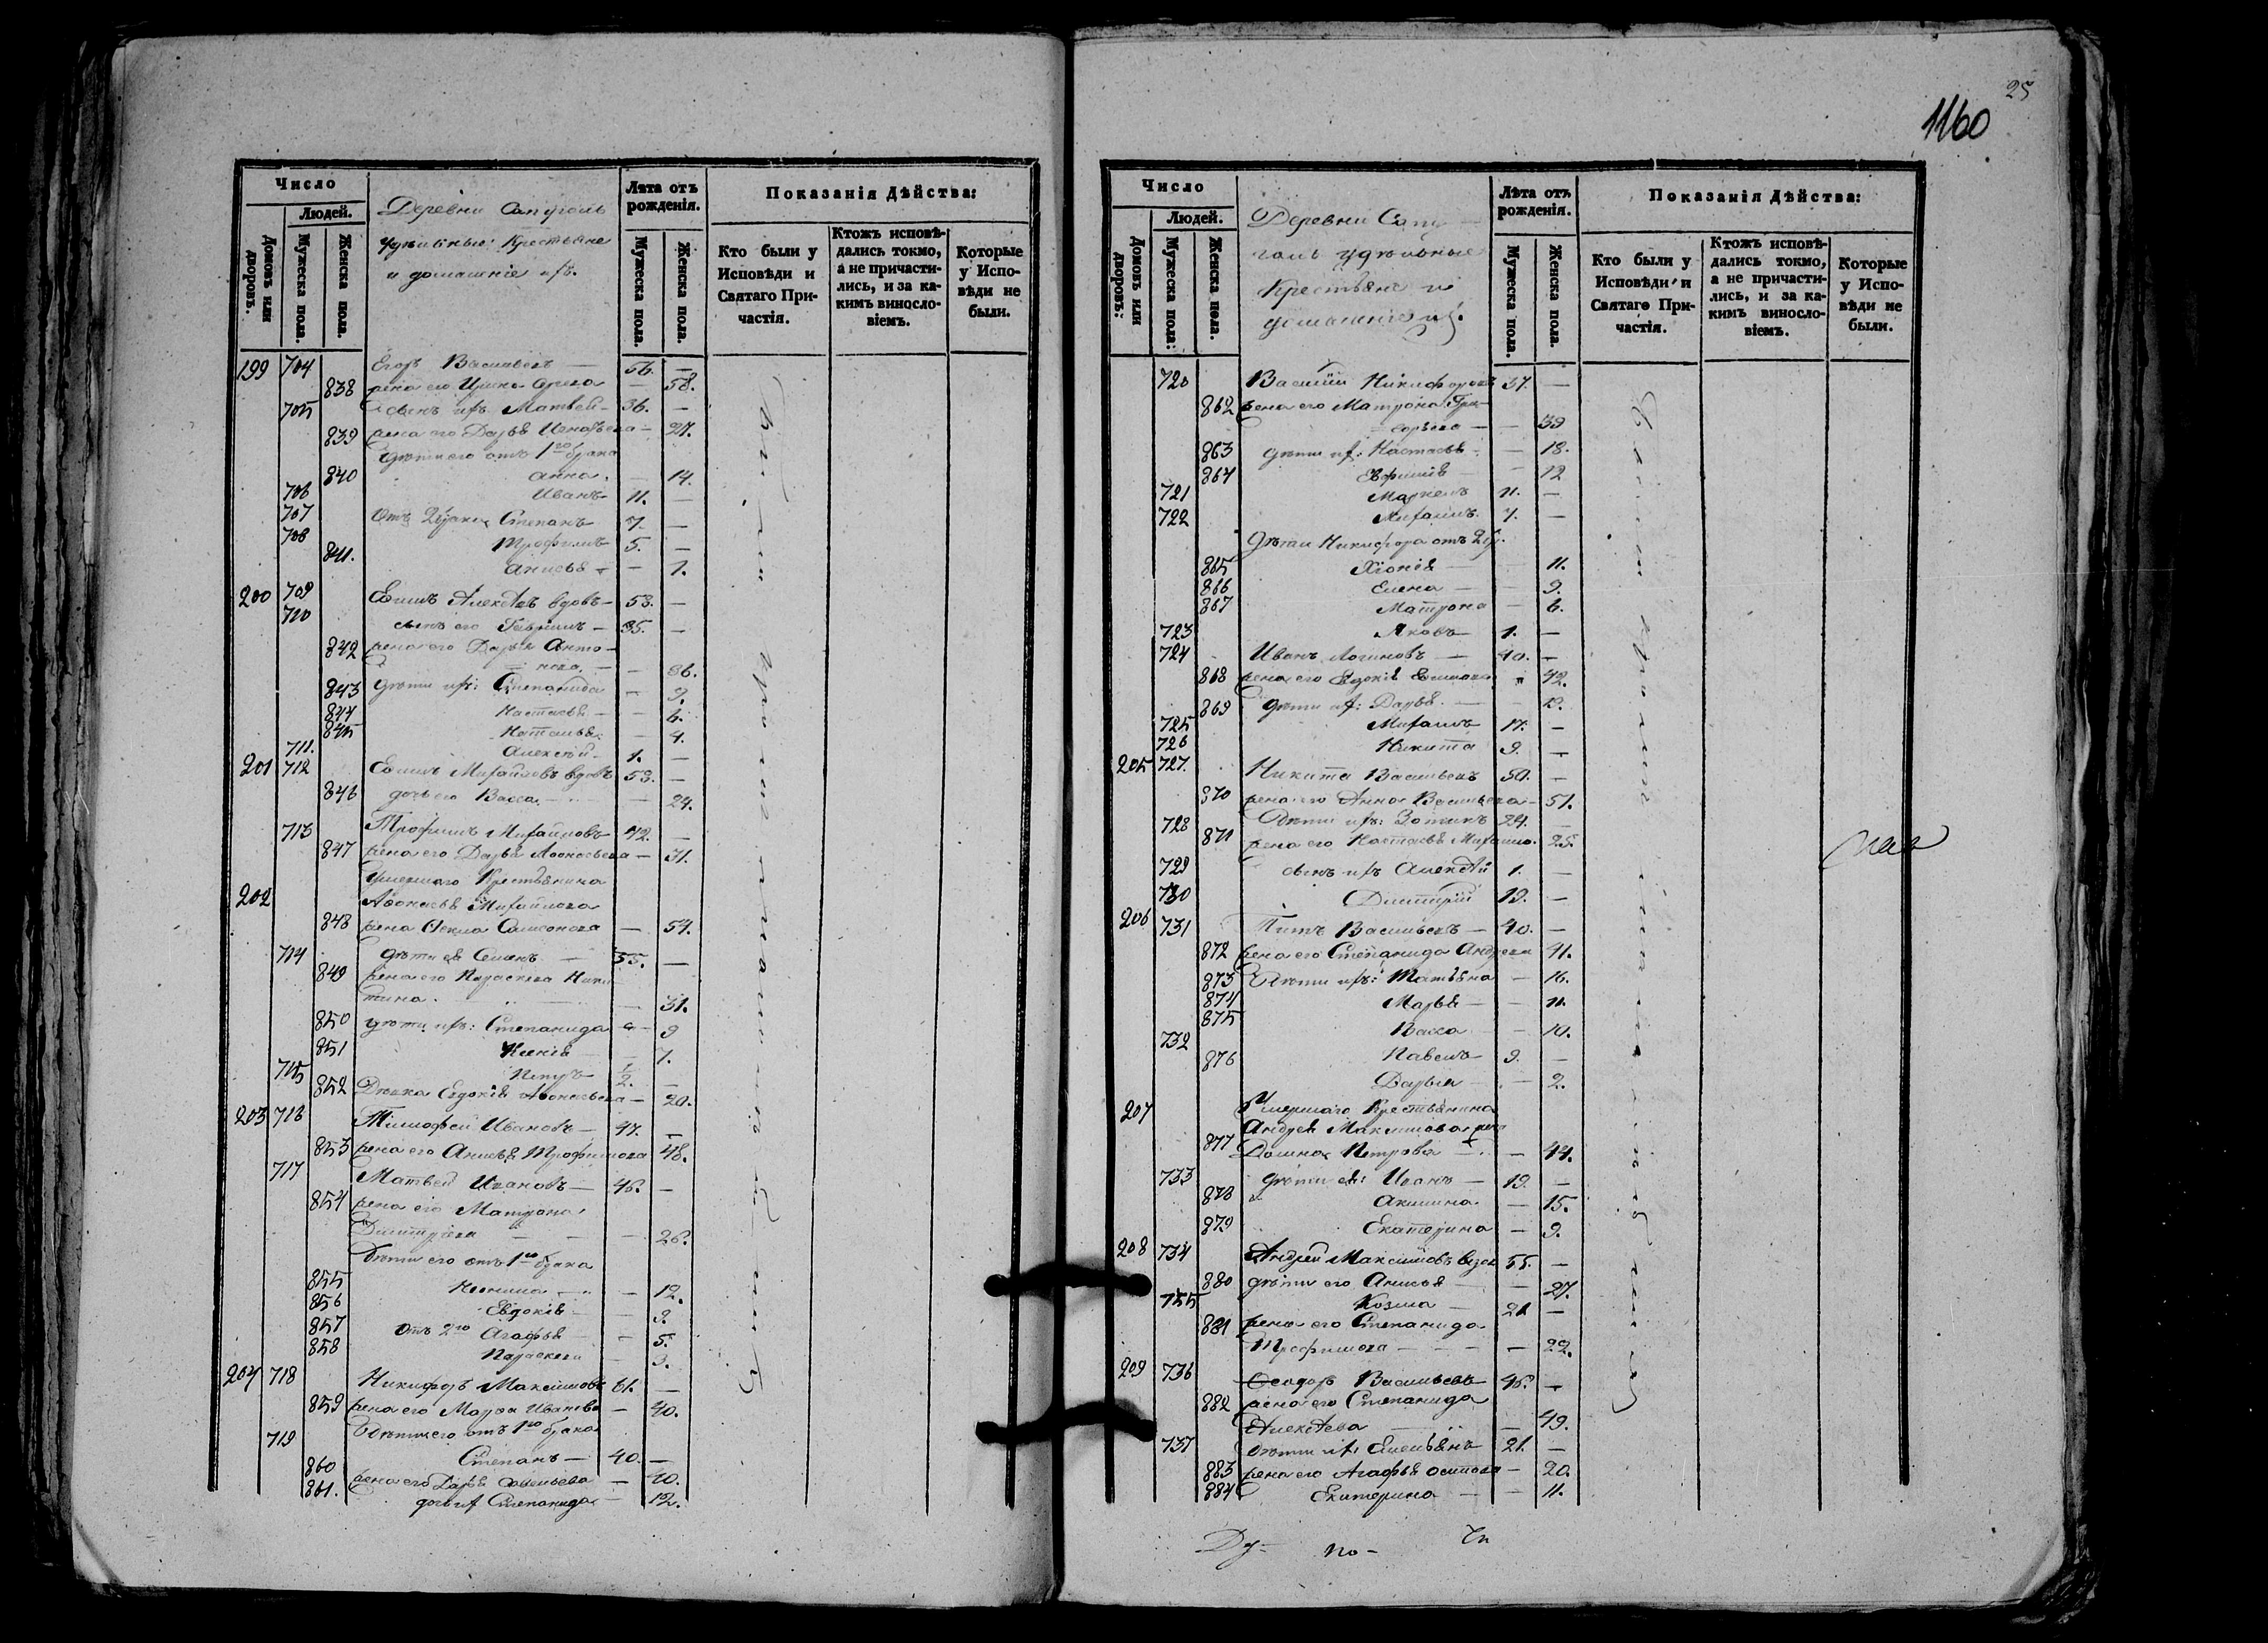 25
1160
Число
Людей.
Домовъ или дворовъ.
Мужеска пола.
Женска пола.
Деревни Сапуголь
удѣльные Крестьяне
и домашніе ихъ.
Лѣта отъ рожденія.
Мужеска пола.
Женска пола.
Показанія Дѣйства:
Кто были у Исповѣди и Святаго Причастія.
Ктожъ исповѣдались токмо, а не причастились, и за какимъ винословіемъ.
Которые у Исповѣди не были.
199 704 Егоръ Васильевъ — 56. —
838 жена его Ирина — 58.
705 сынъ ихъ Матвей — 36. —
839 жена его Дарья — 27.
дѣти его отъ 1го брака
840 Анна. — 14.
706 Иванъ 11. —
707 Отъ 2 брака Степанъ 7. —
708 Трофимъ 5. —
841. Анисья — 1.
200 709 Алексѣевъ вдовъ — 53. —
710 сынъ его Гавриилъ — 35. —
842 жена его Дарья Анто-
нова — 36.
843 дѣти ихъ: Степанида — 9.
844 Настасья — 6.
845 Наталья — 4.
711. Алексѣй 1. —
201 712 Михайловъ вдовъ 53. —
846 дочь его Васса — 24.
713 Трофимъ Михайловъ 42. —
847 жена его Дарья Афонасьева — 31.
202 Умершаго Крестьянина
Афонасья Михайлова
848 жена Фекла Самсонова — 54.
714 дѣти ея Семенъ 35. —
849 жена его Параскева Ники-
тина — 31.
850 дѣти ихъ: Степанида — 9
851 Ксенія — 7.
715 Петръ ½. —
852 Дѣвка Евдокія Афонасьева — 20.
203 716 Тимофей Ивановъ — 47. —
853 жена его Анисья Трофимова 48.
717 Матвей Ивановъ — 46. —
854 жена его Матрона
Дмитріева — 26.
Дѣти его отъ 1го брака
855 — 12.
856 Евдокія — 9.
857 Отъ 2го Агафья — 5.
858 Параскева — 3.
204 718 Никифоръ Максимовъ 61. —
859 жена его Марфа Иванова — 40.
Дѣти его отъ 1го брака
719 Степанъ — 40. —
860 жена его Дарья Савельева — 40.
861. дочь их Степанида — 12.
Число
Людей.
Домовъ или дворовъ:
Мужеска пола:
Женска пола.
Деревни Сапу-
голь удѣльные
Крестьяне и
домашніе их.
Лѣта отъ рожденія.
Мужеска пола.
Женска пола.
Показанія Дѣйства:
Кто были у Исповѣди и Святаго Причастія.
Ктожъ исповѣдались токмо, а не причастились, и за какимъ винословіемъ.
Которые у Исповѣди не были.
720 Василій Никифоровъ 37. —
862 жена его Матрона Гри-
горьева — 39
863 дѣти их: Настасья — 18.
864 Евфимія — 12
721 Маркелъ 11. —
722 Михаилъ 7. —
Дѣти Никифора отъ 2 бр.
865 Хіонія — 11.
866 Елена — 9.
867 Матрона — 6.
723 Яковъ 1. —
724 Иванъ Логиновъ — 40. —
868 жена его Евдокія — 42.
869 дѣти их: Дарья —
725 Михаилъ 17. —
726 Никита 9. —
205 727. Никита Васильевъ 50. —
870 жена его Анна Васильева — 51.
728 Дѣти ихъ: Зотикъ 24. —
871 жена его Настасья Михайло. 25.
729 сынъ ихъ Алексѣй 1. —
730 Дмитрій 19. —
206 731 Титъ Васильевъ — 40. —
872 жена его Степанида Андреева 41.
873 Дѣти ихъ: Татьяна — 16.
874 Марья — 11.
875 Васса — 10.
732 Павелъ 9. —
876 Дарья — 2.
207 Умершаго Крестьянина
Андрея Максимова жена
877 Домна Петрова — 44.
733 дѣти ея: Иванъ — 19. —
878 Акилина — 15.
879 Екатерина — 9.
208 734 Андрей Максимовъ вдов 55. —
880 дѣти его Анисья — 27.
735 Козма — 21 —
881 жена его Степанида
Трофимова — 22.
209 736 Феодоръ Васильевъ 46. —
882 жена его Степанида
Алексѣева — 49.
737 дѣти их: Емельянъ 21. —
883 жена его Агафья Осипова — 20.
884 Екатерина — 11.
по-